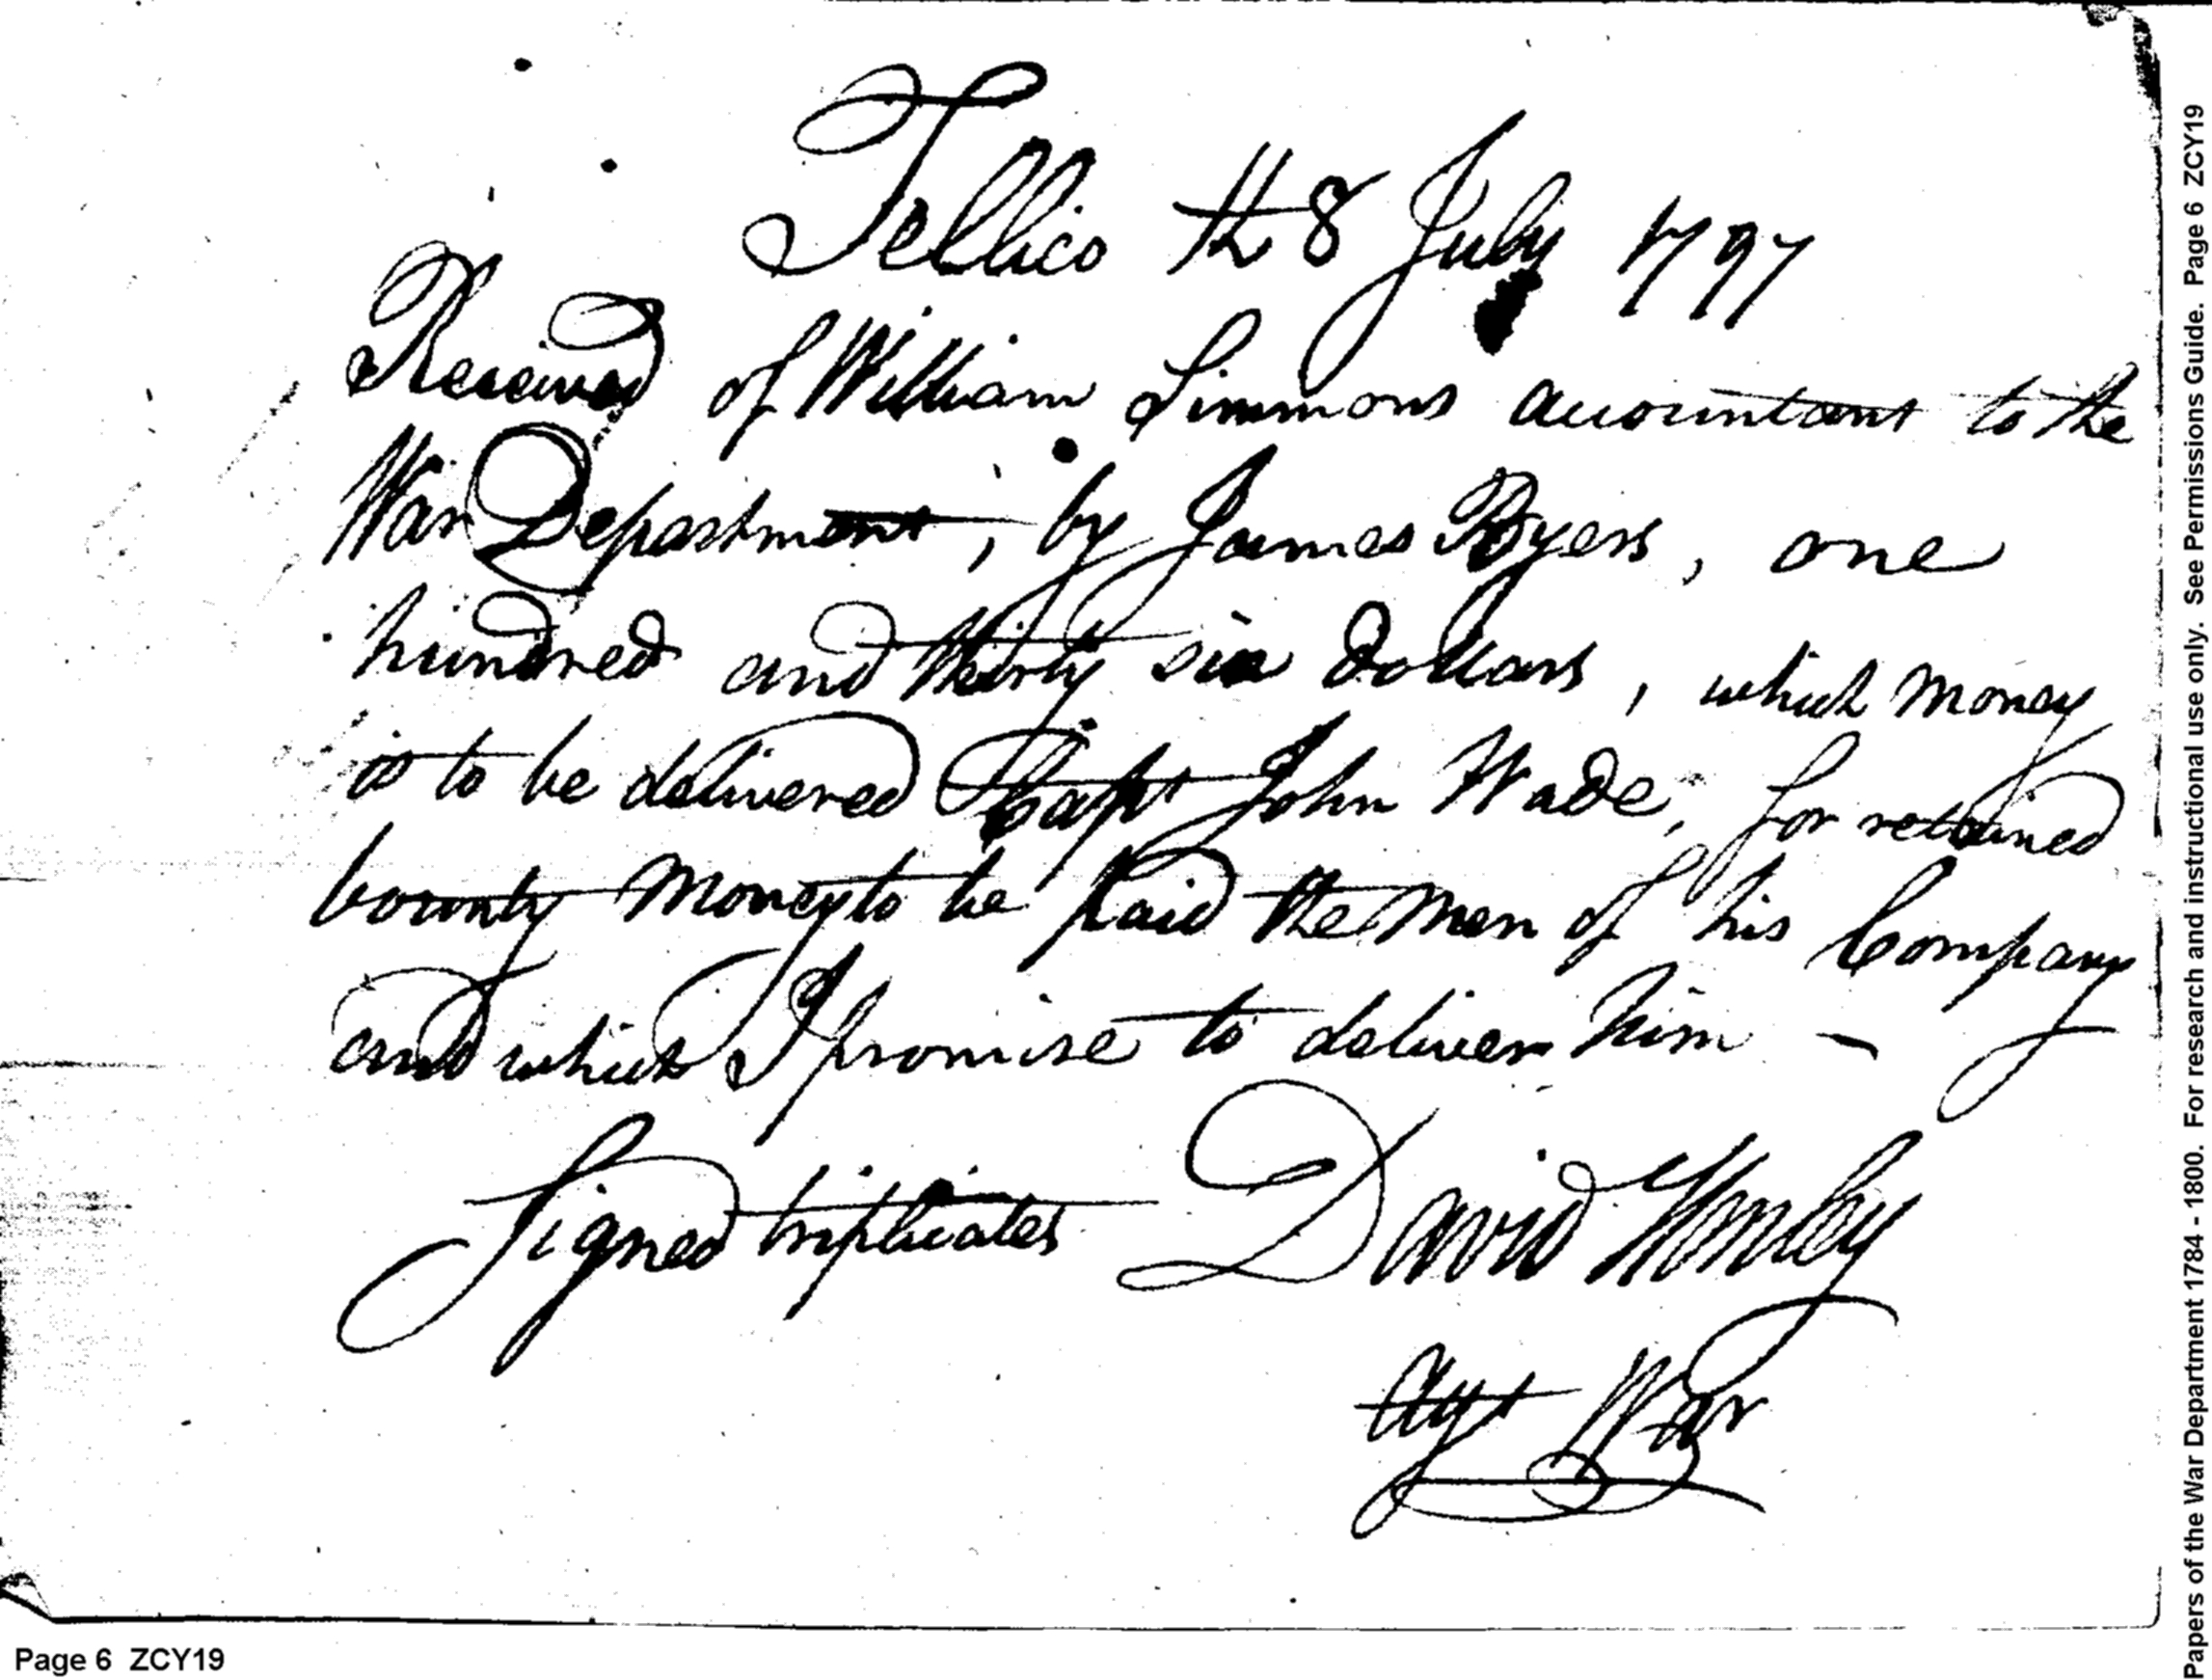 Tellico the 8 July 1797
Received of William Simmons accountant to the
War Department, by James Byers, one
hundred and thirty six dollars, which money
is to be delivered Capt John Wade, for retained
bounty money to be paid the men of his Company
and which I promise to deliver him -
Signed triplicates David Henley
Agt War
Page 6 ZCY19
Papers of the War Department 1784 - 1800. For research and instructional use only. See Permissions Guide. Page 6 ZCY19